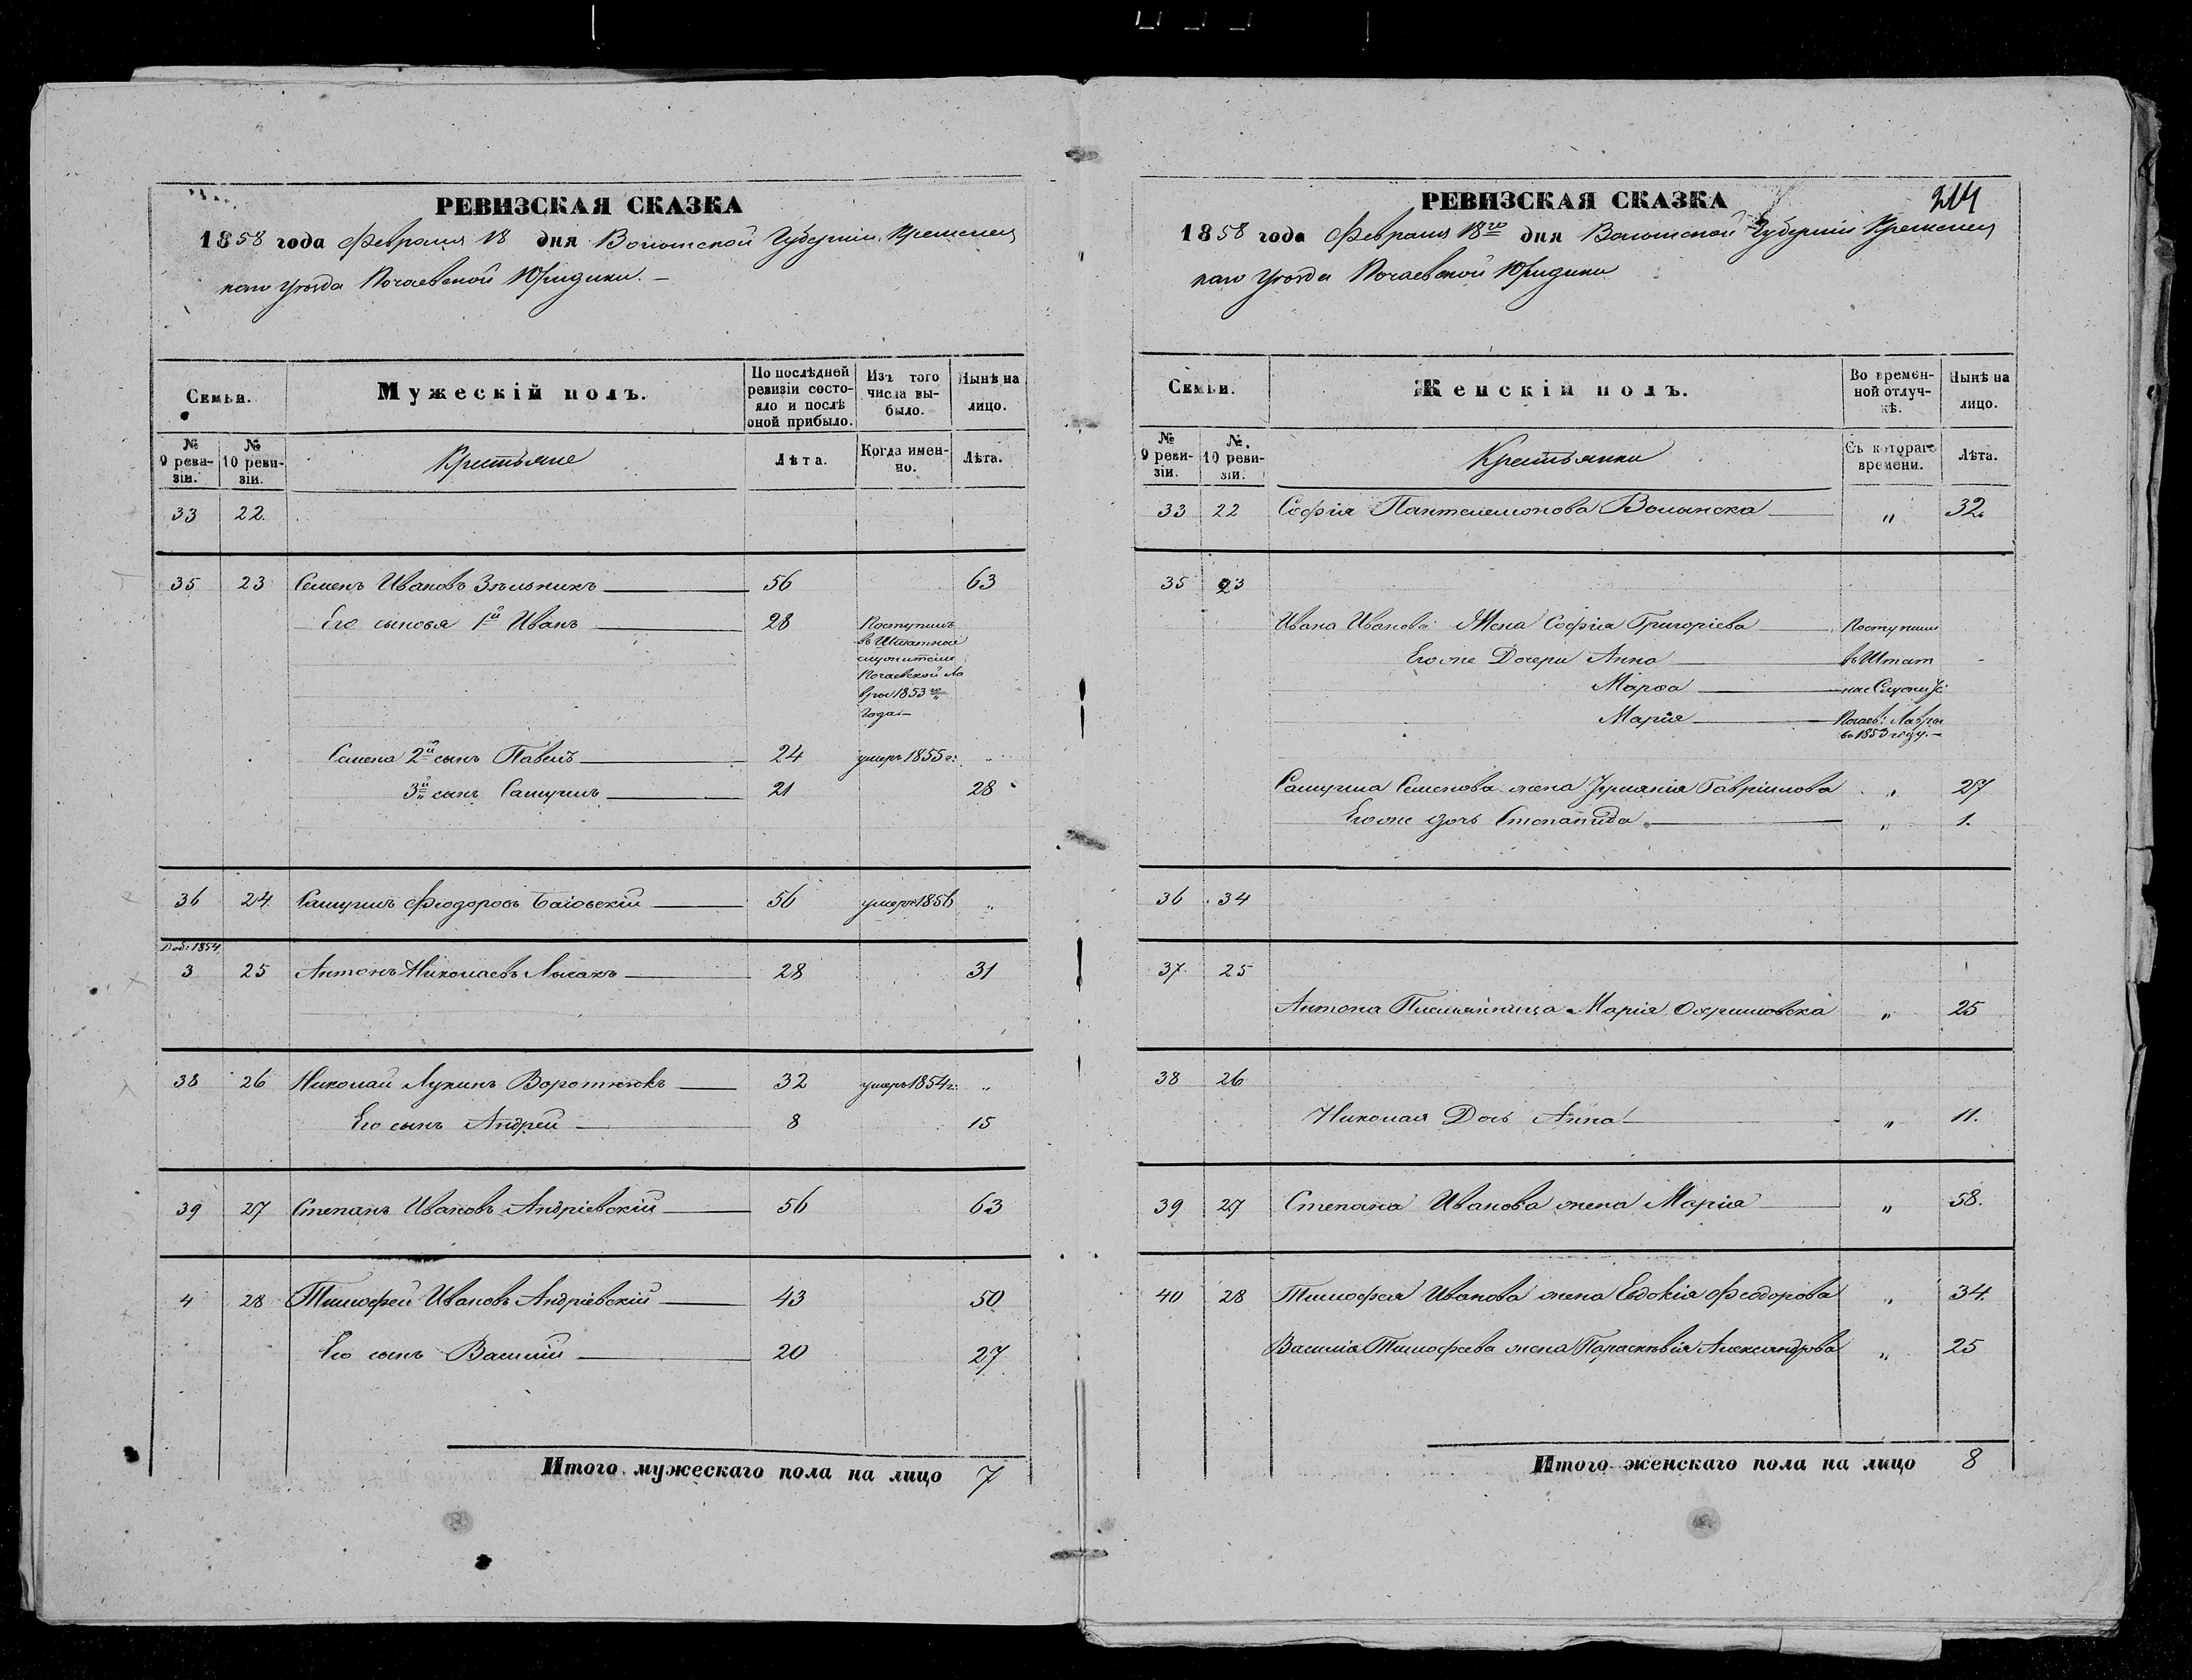 РЕВИЗСКАЯ СКАЗКА
1858 года Февраля 18 дня Волынской Губерніи Кременец
каго Уѣзда Почаевской Юридики. —
Семьи.
Мужескій полъ.
По послѣдней ревизіи состояло и послѣ оной прибыло.
Изъ того числа выбыло.
Нынѣ на лицо.
№ 9 ревизіи.
№ 10 ревизіи.
Крестьяне
Лѣта.
Когда именно.
Лѣта.
33 22.
35 23 Семенъ Ивановъ Зѣльникъ 56 63
Его сыновья 1й Иванъ 28 Поступилъ
въ Штатные
служители
Почаевской Ла
вры 1853го
Года
Семена 2й сынъ Павелъ 24 умеръ 1855 г: "
3й сынъ Самуилъ 21 28
36 24 Самуилъ Феодоровъ 56 умеръ 1856 "
Доб: 1854
3 25 Антонъ Николаевъ Лысакъ 28 31
38 26 Николай Лукинъ Воротнюкъ 32 умеръ 1854 г: "
Его сынъ Андрей 8 15
39 27 Степанъ Ивановъ Андріевскій 56 63
4 28 Тимофей Ивановъ Андріевскій 43 50
Его сынъ Василій 20 27
Итого мужескаго пола на лицо 7
РЕВИЗСКАЯ СКАЗКА
214
1858 года Февраля 18го дня Волынской Губерніи Кременец
каго Уѣзда Почаевской Юридики
Семьи.
Женскій полъ.
Во временной отлучкѣ.
Нынѣ на лицо.
№ 9 ревизіи.
№. 10 ревизіи.
Крестьянки
Съ котораго времени.
Лѣта.
33 22 Софія Пантелеимонова Волынска " 32.
35 23
Ивана Иванова Жена Софія Григоріева Поступили
Егоже Дочери Анна въ Штат
Марѳа ные Служи
Марія Почаев: Лавры
въ 1853 году. —
Самуила Семенова жена Іуліанія Гавріилова " 27
Егоже дочь Степанида " 1.
36 34
37 25
Антона Племянница Марія Охримовска " 25
38 26
Николая Дочь Анна " 11.
39 27 Степана Иванова жена Марія " 58.
40 28 Тимофея Иванова жена Евдокія Феодорова " 34.
Василія Тимофеева жена Параскѣвія Александрова " 25
Итого женскаго пола на лицо 8